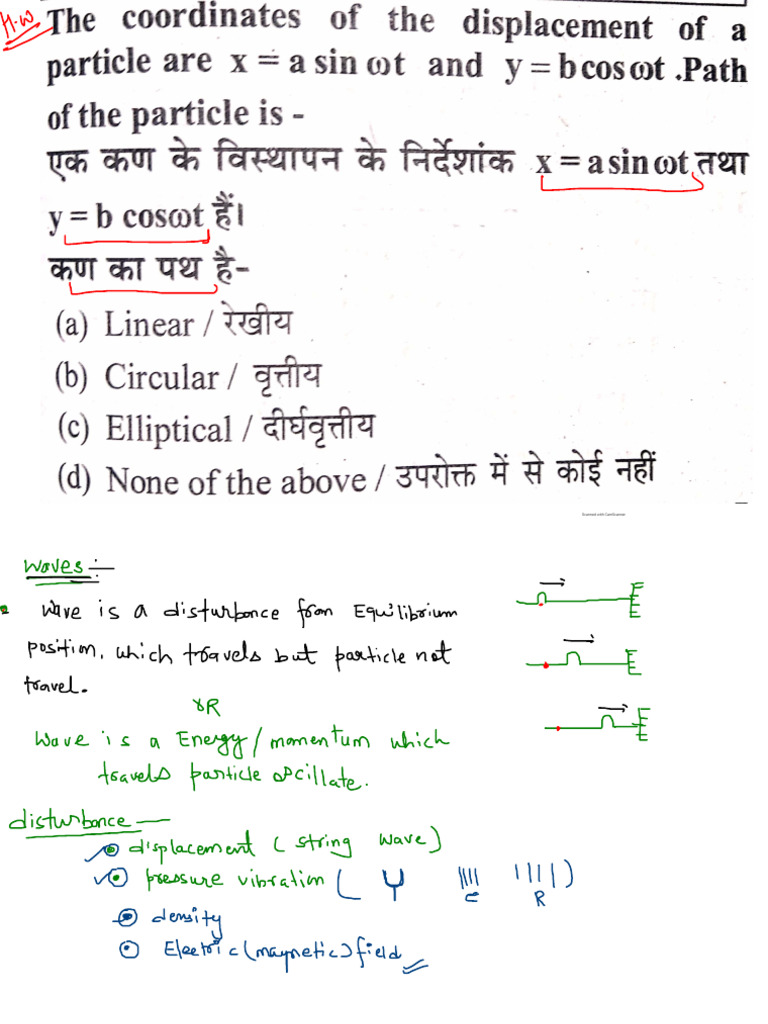 H.W The coordinates of the displacement of a
particle are x = a sin ωt and y = b cos ωt .Path
of the particle is -
एक कण के विस्थापन के निर्देशांक x = a sin ωt तथा
y = b cosωt हैं।
कण का पथ है-
(a) Linear / रेखीय
(b) Circular / वृत्तीय
(c) Elliptical / दीर्घवृत्तीय
(d) None of the above / उपरोक्त में से कोई नहीं
Scanned with CamScanner
Waves :-
Wave is a disturbance from Equilibrium
position, which travels but particle not
travel.
OR
Wave is a Energy/momentum which
travels particle oscillate.
disturbance —
displacement ( string wave)
pressure vibration ( C R )
density
Electric (magnetic) field